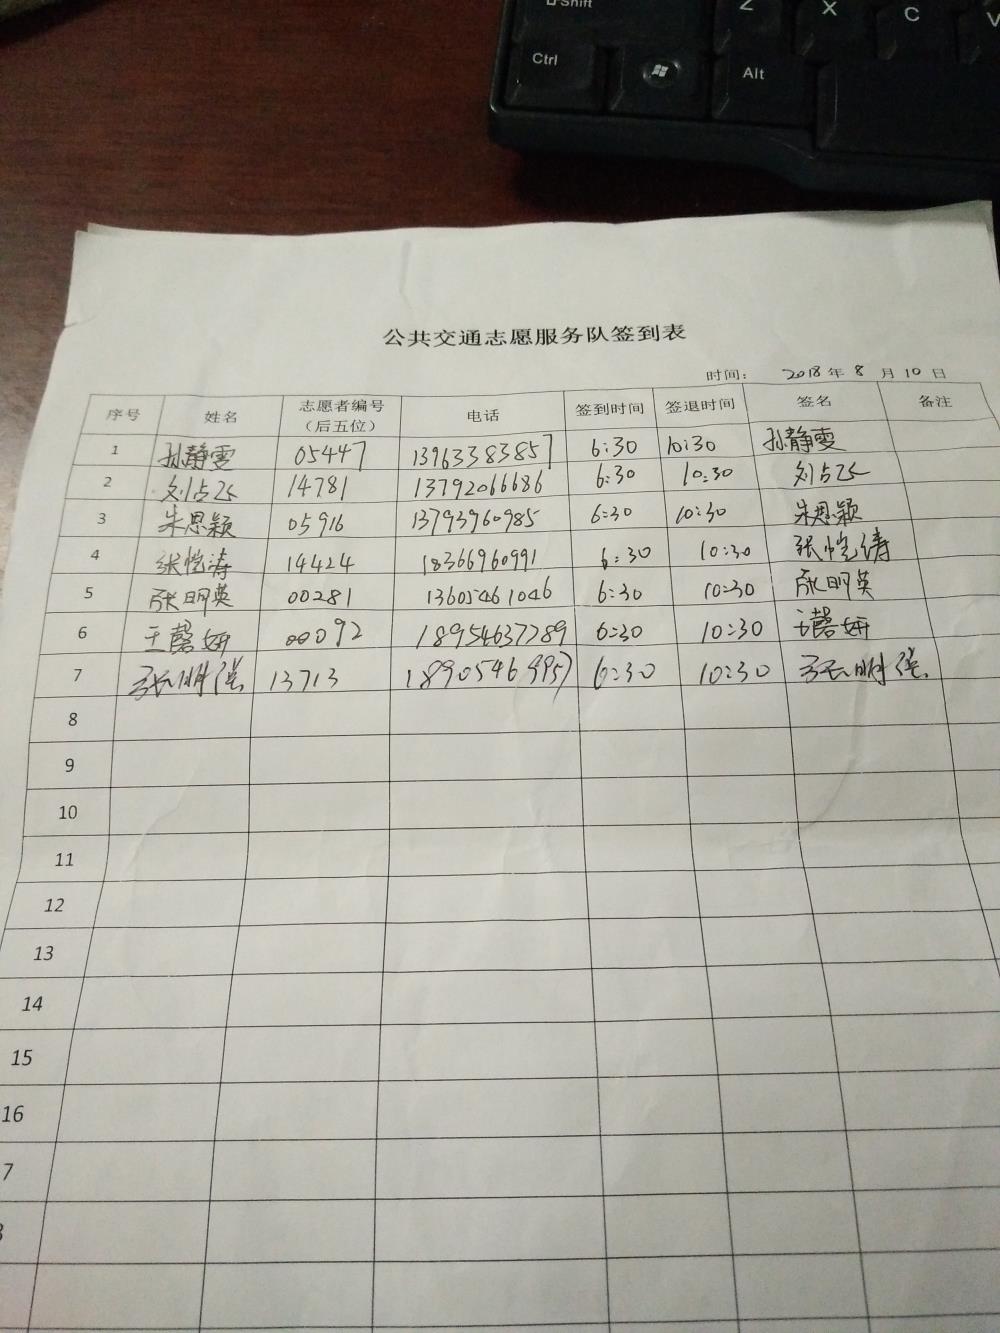 Shift Z X C V
Ctrl Alt
公共交通志愿服务队签到表
时间： 2018 年 8 月 10 日
序号 姓名 志愿者编号（后五位） 电话 签到时间 签退时间 签名 备注
1 孙静雯 05447 13963383857 6:30 10:30 孙静雯
2 14781 13792066686 6:30 10:30
3 朱思颖 05916 13793960985 6:30 10:30 朱思颖
4 张恺涛 14424 18366960991 6:30 10:30 张恺涛
5 张明英 00281 13605461046 6:30 10:30 张明英
6 王馨妍 00092 18954637789 6:30 10:30 王馨妍
7 张明强 13713 18905469957 6:30 10:30 张明强
8
9
10
11
12
13
14
15
16
7